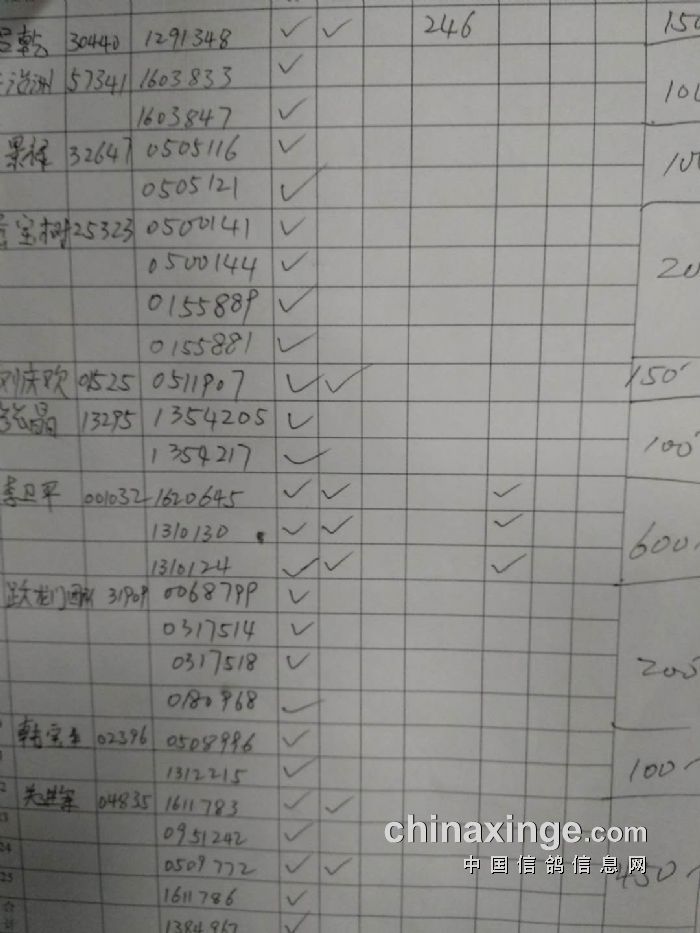 30440 1291348 ✓ ✓ 246 150
57341 1603833 ✓ 100
1603847 ✓
32647 0505116 ✓ 100
0505121 ✓
宝树 25323 0500141 ✓ 200
0500144 ✓
0155889 ✓
0155881 ✓
刘庆欢 01525 0511907 ✓ ✓ 150
晶 13295 1354205 ✓ 100
1354217 ✓
李卫平 001032 1620645 ✓ ✓ ✓ 600
1310130 ✓ ✓ ✓
1310124 ✓ ✓ ✓
跃龙门团队 31909 0068799 ✓ 200
0317514 ✓
0317518 ✓
0180968 ✓
韩宝 02396 0508996 ✓ 100
1312215 ✓
04835 1611783 ✓ ✓ 450
0951242 ✓
24 0509772 ✓ ✓
25 1611786 ✓
合 1384967 ✓
chinaxinge.com
中国信鸽信息网